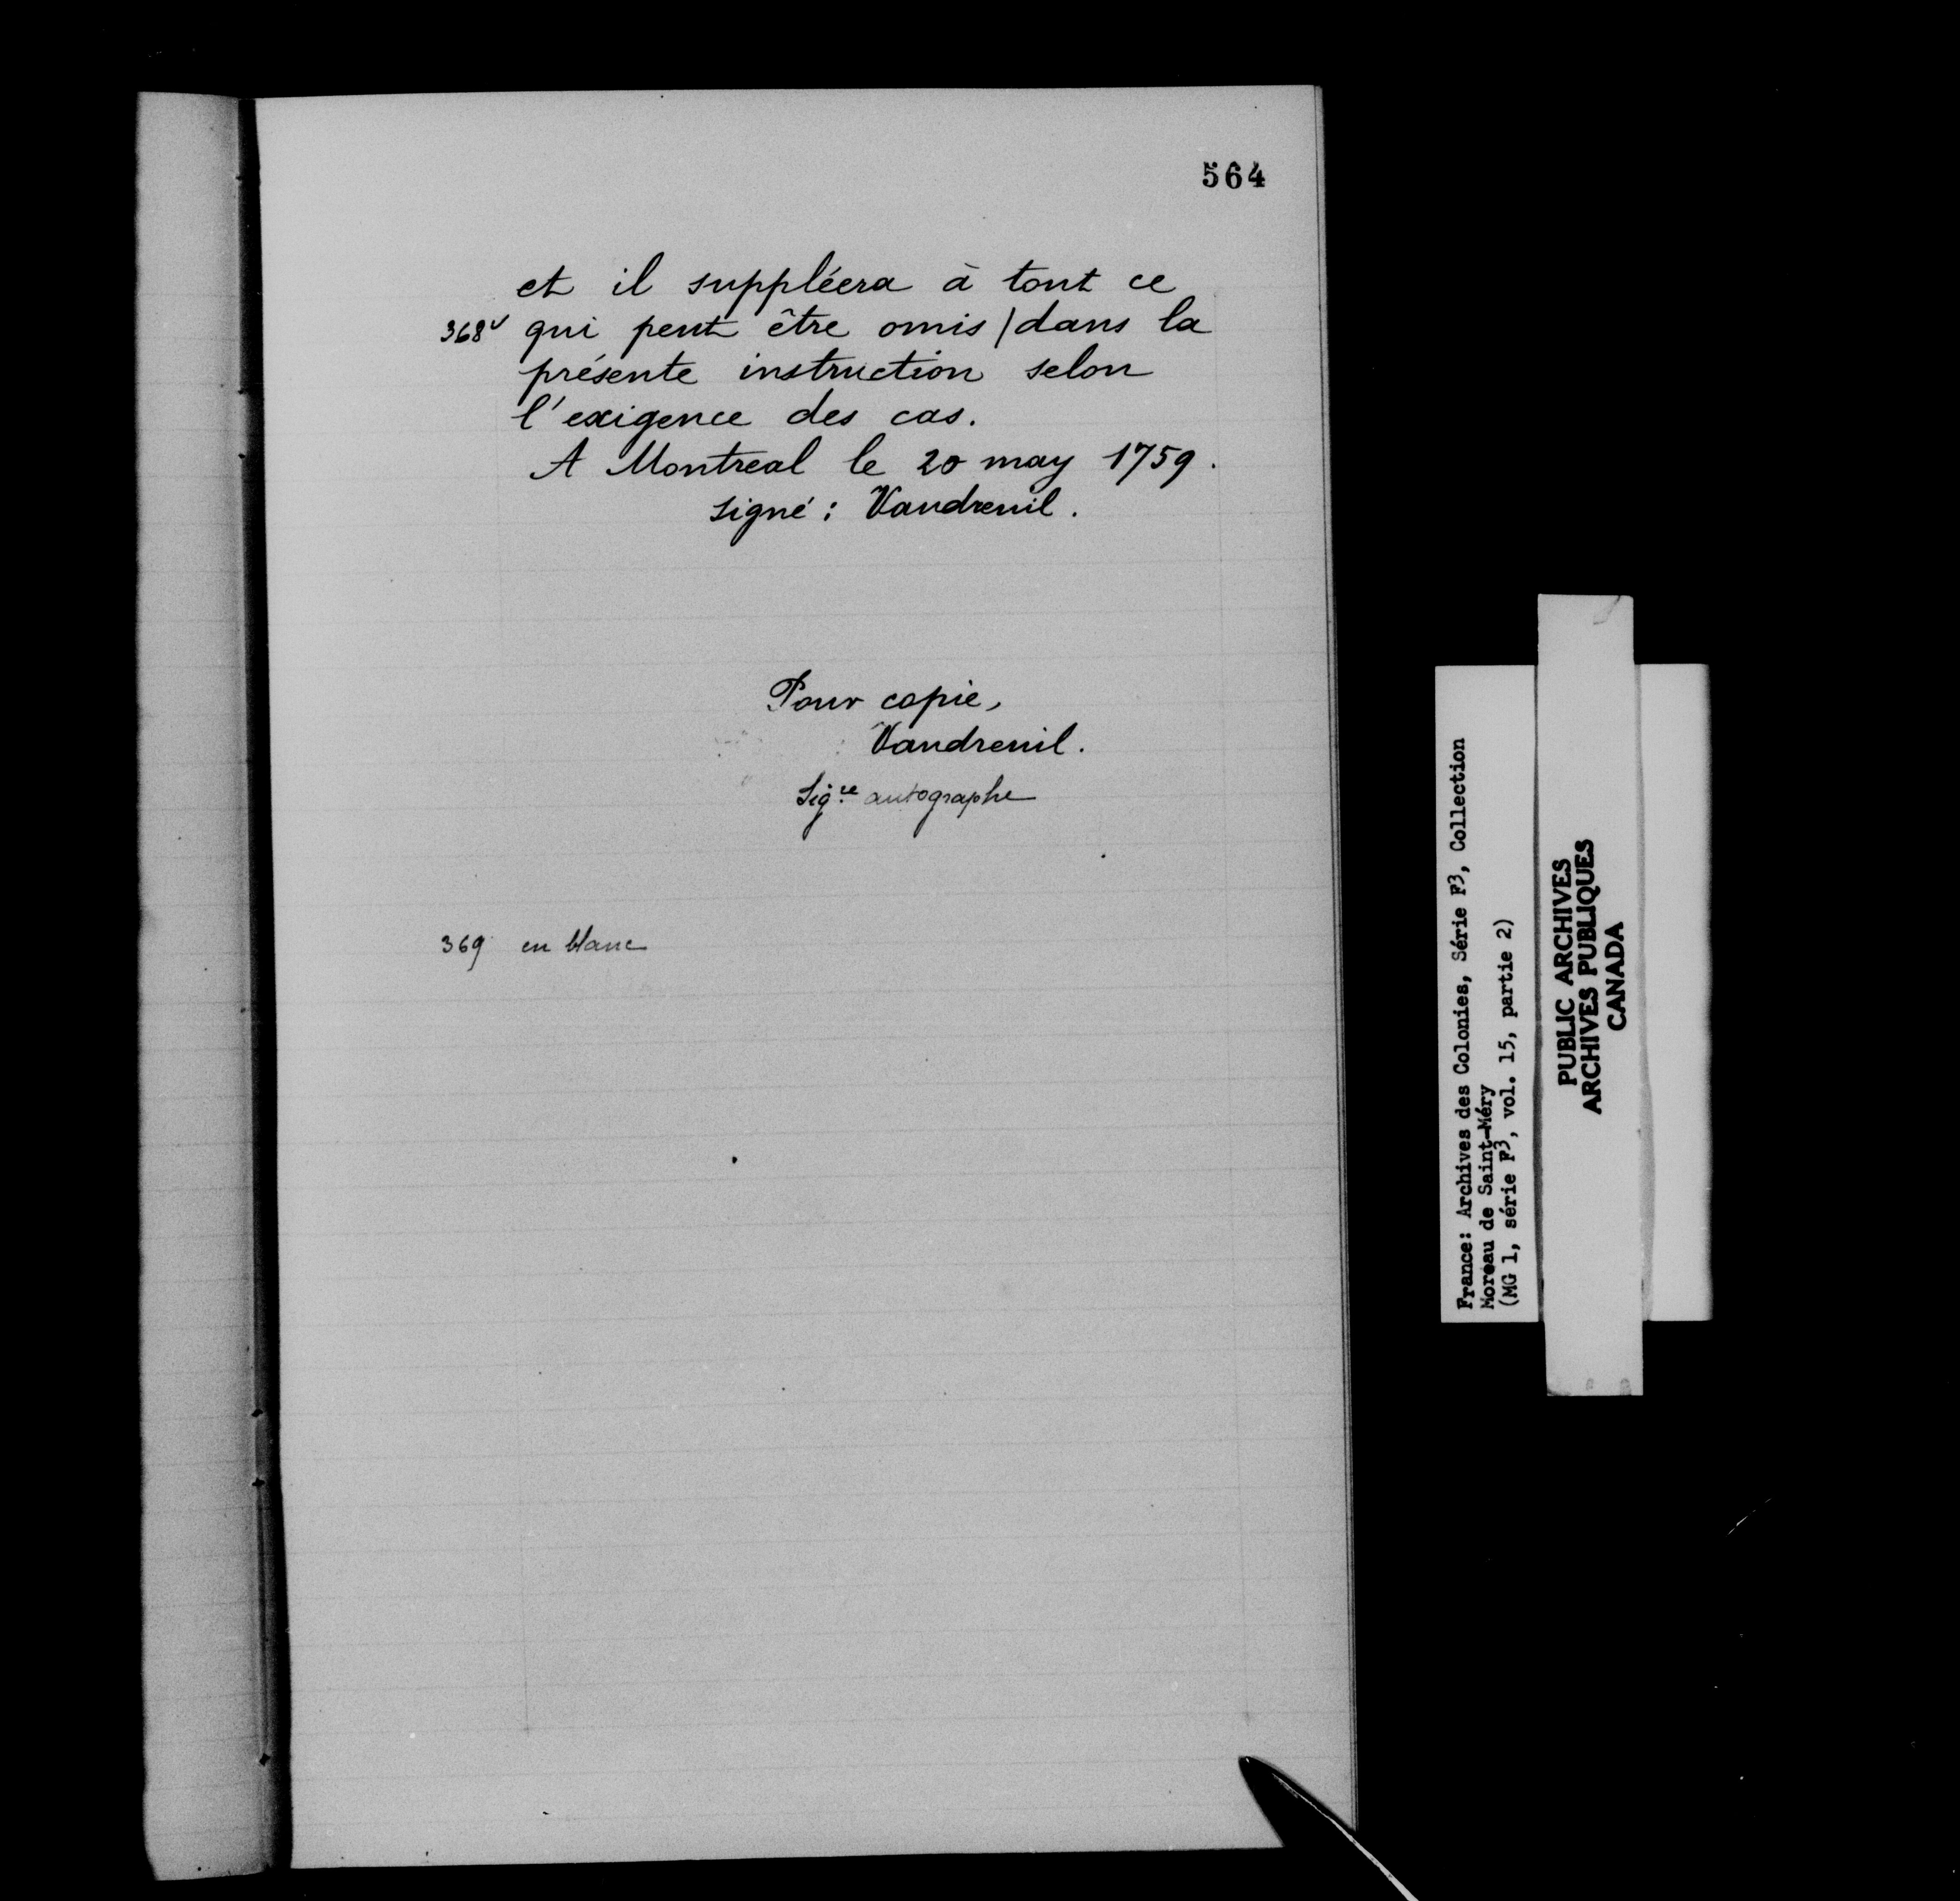 564
et il suppléera à tout ce
368v qui peut être omis / dans la
présente instruction selon
l'exigence des cas.
A Montreal le 20 may 1759.
signé : Vaudreuil.
Pour copie,
Vaudreuil.
Sig.re autographe
369 en blanc
France: Archives des Colonies, Série F3, Collection
Moreau de Saint-Méry
(MG 1, série F3, vol. 15, partie 2)
PUBLIC ARCHIVES
ARCHIVES PUBLIQUES
CANADA